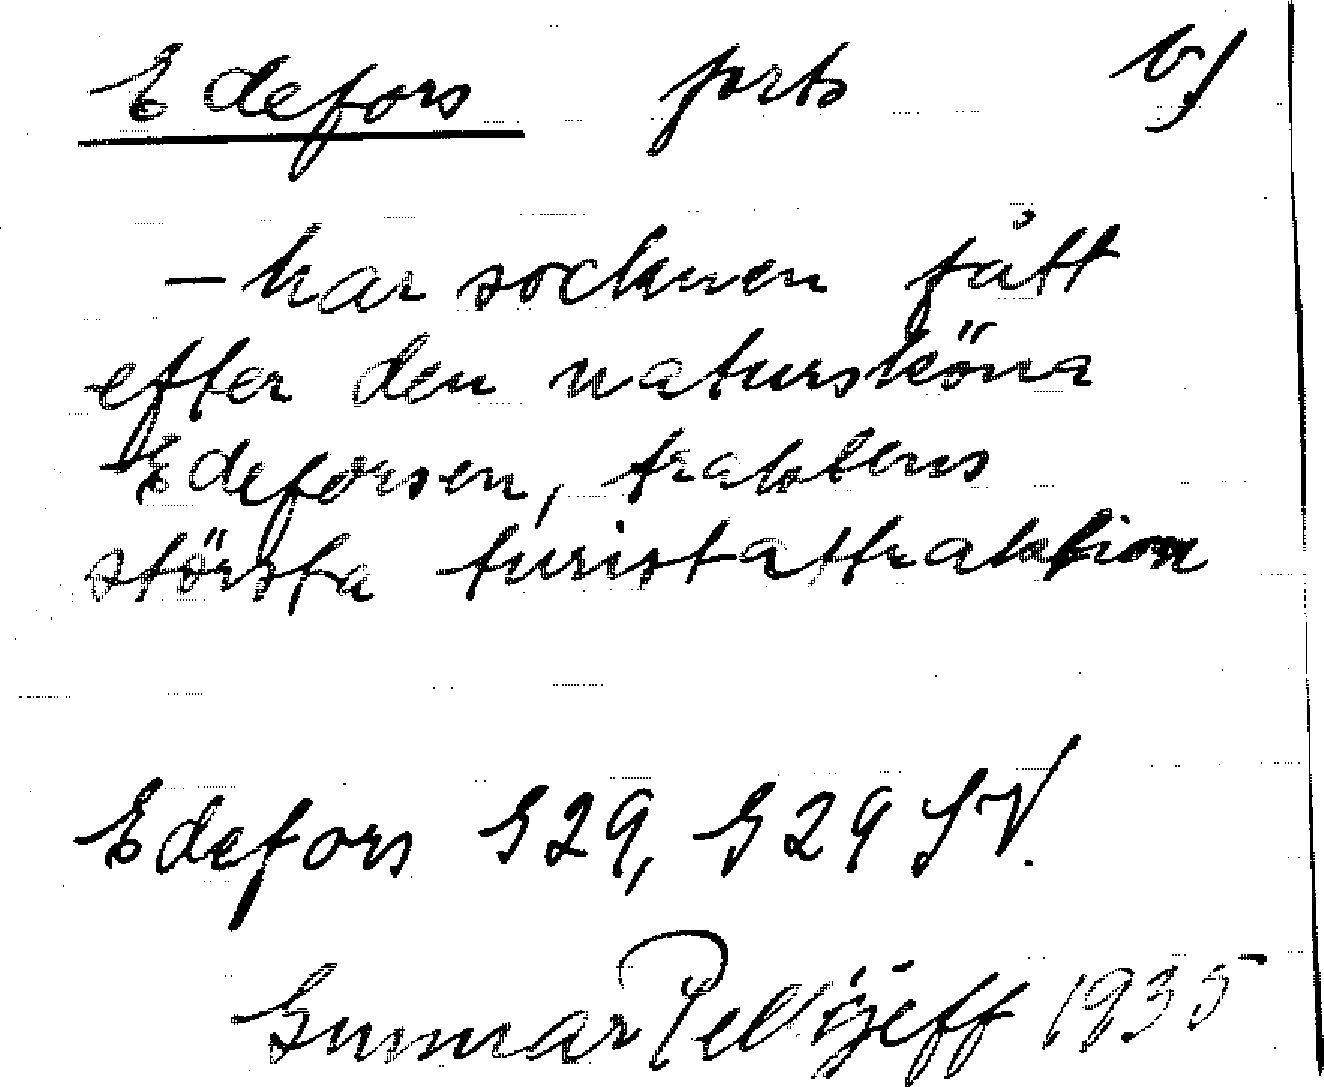 Edefors forts b)
— har socknen fått
efter den natursköna
Edeforsen, traktens
största turistattraktion
Edefors G29, G29 SV.
Gunnar Pellijeff 1935